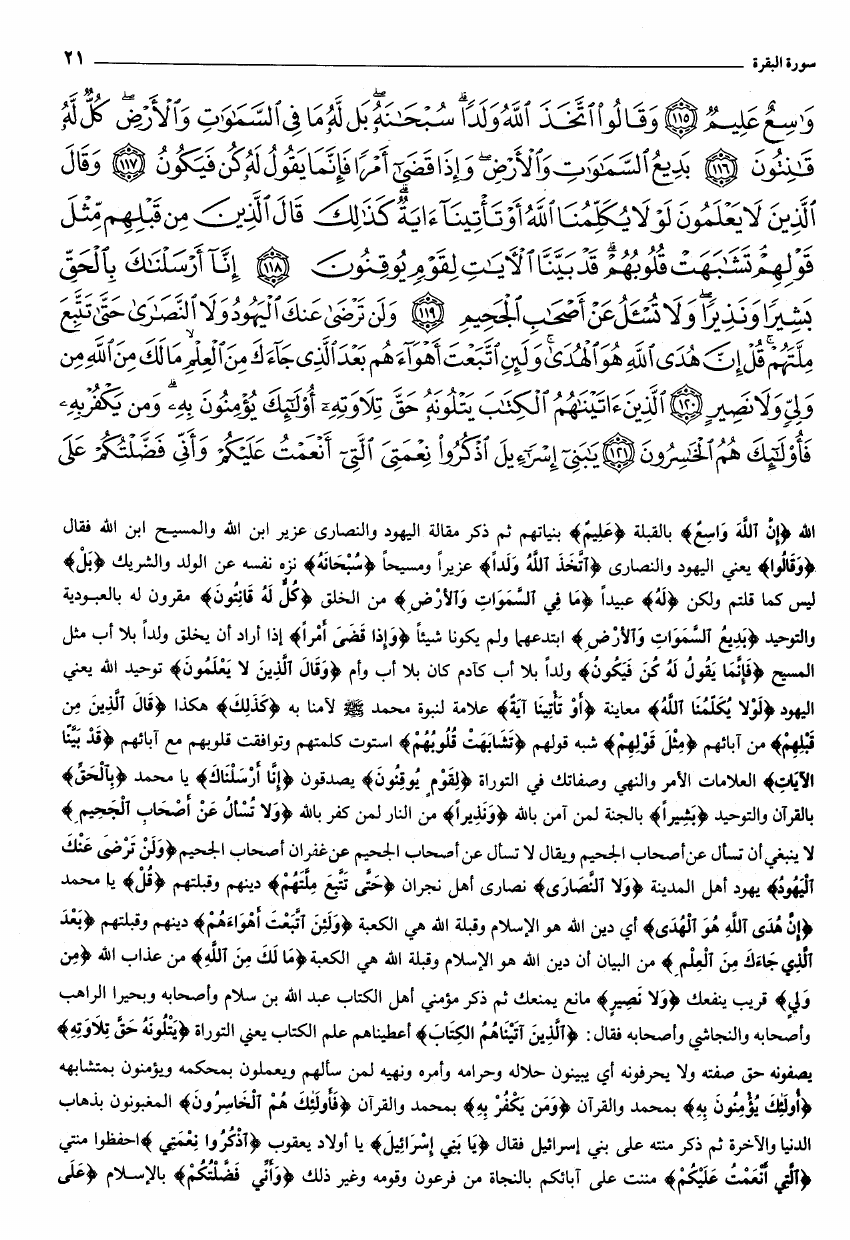 سورة البقرة ٢١
وَٰسِعٌ عَلِيمٌ ١١٥ وَقَالُوا۟ ٱتَّخَذَ ٱللَّهُ وَلَدًا ۗ سُبْحَٰنَهُۥ ۖ بَل لَّهُۥ مَا فِى ٱلسَّمَٰوَٰتِ وَٱلْأَرْضِ ۖ كُلٌّ لَّهُۥ
قَٰنِتُونَ ١١٦ بَدِيعُ ٱلسَّمَٰوَٰتِ وَٱلْأَرْضِ ۖ وَإِذَا قَضَىٰٓ أَمْرًا فَإِنَّمَا يَقُولُ لَهُۥ كُن فَيَكُونُ ١١٧ وَقَالَ
ٱلَّذِينَ لَا يَعْلَمُونَ لَوْلَا يُكَلِّمُنَا ٱللَّهُ أَوْ تَأْتِينَآ ءَايَةٌ ۗ كَذَٰلِكَ قَالَ ٱلَّذِينَ مِن قَبْلِهِم مِّثْلَ
قَوْلِهِمْ ۘ تَشَٰبَهَتْ قُلُوبُهُمْ ۗ قَدْ بَيَّنَّا ٱلْءَايَٰتِ لِقَوْمٍ يُوقِنُونَ ١١٨ إِنَّآ أَرْسَلْنَٰكَ بِٱلْحَقِّ
بَشِيرًا وَنَذِيرًا ۖ وَلَا تُسْـَٔلُ عَنْ أَصْحَٰبِ ٱلْجَحِيمِ ١١٩ وَلَن تَرْضَىٰ عَنكَ ٱلْيَهُودُ وَلَا ٱلنَّصَٰرَىٰ حَتَّىٰ تَتَّبِعَ
مِلَّتَهُمْ ۗ قُلْ إِنَّ هُدَى ٱللَّهِ هُوَ ٱلْهُدَىٰ ۗ وَلَئِنِ ٱتَّبَعْتَ أَهْوَآءَهُم بَعْدَ ٱلَّذِى جَآءَكَ مِنَ ٱلْعِلْمِ ۙ مَا لَكَ مِنَ ٱللَّهِ مِن
وَلِىٍّ وَلَا نَصِيرٍ ١٢٠ ٱلَّذِينَ ءَاتَيْنَٰهُمُ ٱلْكِتَٰبَ يَتْلُونَهُۥ حَقَّ تِلَاوَتِهِۦٓ أُو۟لَٰٓئِكَ يُؤْمِنُونَ بِهِۦ ۗ وَمَن يَكْفُرْ بِهِۦ
فَأُو۟لَٰٓئِكَ هُمُ ٱلْخَٰسِرُونَ ١٢١ يَٰبَنِىٓ إِسْرَٰٓءِيلَ ٱذْكُرُوا۟ نِعْمَتِىَ ٱلَّتِىٓ أَنْعَمْتُ عَلَيْكُمْ وَأَنِّى فَضَّلْتُكُمْ عَلَى
الله ﴿إِنَّ ٱللَّهَ وَاسِعٌ﴾ بالقبلة ﴿عَلِيمٌ﴾ بنياتهم ثم ذكر مقالة اليهود والنصارى عزير ابن الله والمسيح ابن الله فقال
﴿وَقَالُوا﴾ يعني اليهود والنصارى ﴿ٱتَّخَذَ ٱللَّهُ وَلَداً﴾ عزيراً ومسيحاً ﴿سُبْحَانَهُ﴾ نزه نفسه عن الولد والشريك ﴿بَلْ﴾
ليس كما قلتم ولكن ﴿لَهُ﴾ عبيداً ﴿مَا فِي ٱلسَّمَوَاتِ وَٱلأَرْضِ﴾ من الخلق ﴿كُلٌّ لَهُ قَانِتُونَ﴾ مقرون له بالعبودية
والتوحيد ﴿بَدِيعُ ٱلسَّمَوَاتِ وَٱلأَرْضِ﴾ ابتدعهما ولم يكونا شيئاً ﴿وَإِذا قَضَىٰ أَمْراً﴾ إذا أراد أن يخلق ولداً بلا أب مثل
المسيح ﴿فَإِنَّمَا يَقُولُ لَهُ كُنْ فَيَكُونُ﴾ ولداً بلا أب كآدم كان بلا أب وأم ﴿وَقَالَ ٱلَّذِينَ لا يَعْلَمُونَ﴾ توحيد الله يعني
اليهود ﴿لَوْلا يُكَلِّمُنَا ٱللَّهُ﴾ معاينة ﴿أَوْ تَأْتِينَا آيَةٌ﴾ علامة لنبوة محمد ﷺ لآمنا به ﴿كَذَلِكَ﴾ هكذا ﴿قَالَ ٱلَّذِينَ مِن
قَبْلِهِمْ﴾ من آبائهم ﴿مِثْلَ قَوْلِهِمْ﴾ شبه قولهم ﴿تَشَابَهَتْ قُلُوبُهُمْ﴾ استوت كلمتهم وتوافقت قلوبهم مع آبائهم ﴿قَدْ بَيَّنَّا
الآيَاتِ﴾ العلامات الأمر والنهي وصفاتك في التوراة ﴿لِقَوْمٍ يُوقِنُونَ﴾ يصدقون ﴿إِنَّا أَرْسَلْنَاكَ﴾ يا محمد ﴿بِٱلْحَقِّ﴾
بالقرآن والتوحيد ﴿بَشِيراً﴾ بالجنة لمن آمن بالله ﴿وَنَذِيراً﴾ من النار لمن كفر بالله ﴿وَلا تُسْأَلُ عَنْ أَصْحَابِ ٱلْجَحِيمِ﴾
لا ينبغي أن تسأل عن أصحاب الجحيم ويقال لا تسأل عن أصحاب الجحيم عن غفران أصحاب الجحيم ﴿وَلَنْ تَرْضَىٰ عَنْكَ
ٱلْيَهُودُ﴾ يهود أهل المدينة ﴿وَلا ٱلنَّصَارَى﴾ نصارى أهل نجران ﴿حَتَّى تَتَّبِعَ مِلَّتَهُمْ﴾ دينهم وقبلتهم ﴿قُلْ﴾ يا محمد
﴿إِنَّ هُدَى ٱللَّهِ هُوَ ٱلْهُدَى﴾ أي دين الله هو الإسلام وقبلة الله هي الكعبة ﴿وَلَئِنَ ٱتَّبَعْتَ أَهْوَاءَهُمْ﴾ دينهم وقبلتهم ﴿بَعْدَ
ٱلَّذِي جَاءَكَ مِنَ ٱلْعِلْمِ﴾ من البيان أن دين الله هو الإسلام وقبلة الله هي الكعبة ﴿مَا لَكَ مِنَ ٱللَّهِ﴾ من عذاب الله ﴿مِن
وَلِيٍّ﴾ قريب ينفعك ﴿وَلا نَصِيرٍ﴾ مانع يمنعك ثم ذكر مؤمني أهل الكتاب عبد الله بن سلام وأصحابه وبحيرا الراهب
وأصحابه والنجاشي وأصحابه فقال: ﴿ٱلَّذِينَ آتَيْنَاهُمُ الكِتَابَ﴾ أعطيناهم علم الكتاب يعني التوراة ﴿يَتْلُونَهُ حَقَّ تِلاوَتِهِ﴾
يصفونه حق صفته ولا يحرفونه أي يبينون حلاله وحرامه وأمره ونهيه لمن سألهم ويعملون بمحكمه ويؤمنون بمتشابهه
﴿أُولَئِكَ يُؤْمِنُونَ بِهِ﴾ بمحمد والقرآن ﴿وَمَن يَكْفُرْ بِهِ﴾ بمحمد والقرآن ﴿فَأُولَئِكَ هُمْ ٱلْخَاسِرُونَ﴾ المغبونون بذهاب
الدنيا والآخرة ثم ذكر منته على بني إسرائيل فقال ﴿يَا بَنِي إِسْرَائِيلَ﴾ يا أولاد يعقوب ﴿ٱذْكُرُوا نِعْمَتِي﴾ احفظوا منتي
﴿ٱلَّتِي أَنْعَمْتُ عَلَيْكُمْ﴾ مننت على آبائكم بالنجاة من فرعون وقومه وغير ذلك ﴿وَأَنِّي فَضَّلْتُكُمْ﴾ بالإسلام ﴿عَلَى